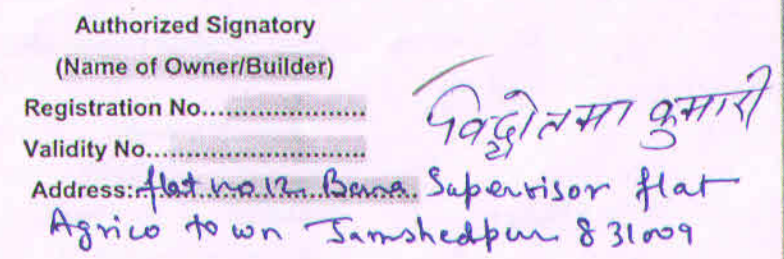 Authorized Signatory
(Name of Owner/Builder)
Registration No.....................
विद्योतमा कुमारी
Validity No............................
Address: flat no 12 Barna Supervisor flat
Agrico town Jamshedpur 831009